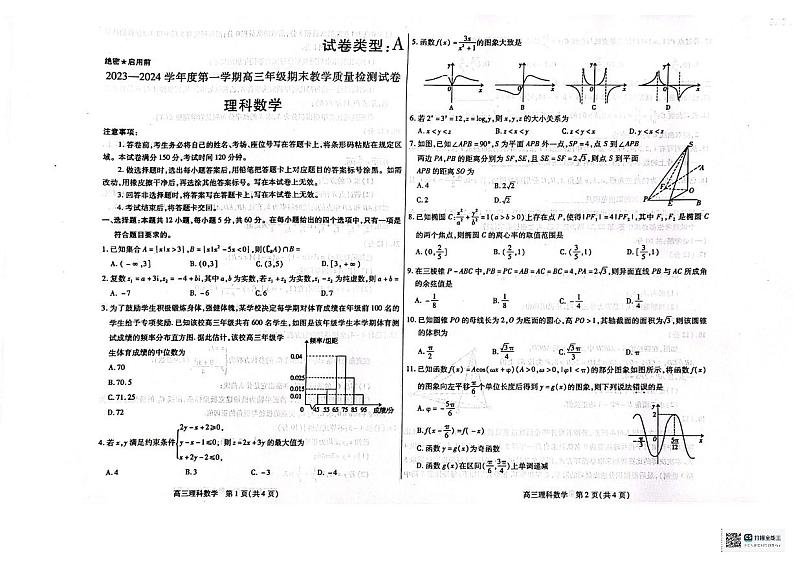 试卷类型:A
绝密★启用前
2023—2024 学年度第一学期高三年级期末教学质量检测试卷
理科数学
注意事项:
1. 答卷前,考生务必将自己的姓名、考场、座位号写在答题卡上,将条形码粘贴在规定区
域。本试卷满分 150 分,考试时间 120 分钟。
2. 做选择题时,选出每小题答案后,用铅笔把答题卡上对应题目的答案标号涂黑。如需
改动,用橡皮擦干净后,再选涂其他答案标号。写在本试卷上无效。
3. 回答非选择题时,将答案写在答题卡上,写在本试卷上无效。
4. 考试结束后,将答题卡交回。
一、选择题:本题共 12 小题,每小题 5 分,共 60 分。在每小题给出的四个选项中,只有一项是
符合题目要求的。
1. 已知集合 A = {x|x>3},B = {x|x²-5x<0},则(∁ᵣA)∩B =
A. (-∞,3] B. (0,3] C. (3,5) D. [3,+∞)
2. 复数 z₁ = a+3i,z₂ = -4+bi,其中 a,b 为实数,若 z₁+z₂ 为实数,z₁-z₂ 为纯虚数,则 a+b =
A. -7 B. -6 C. 6 D. 7
3. 为了鼓励学生积极锻炼身体,强健体魄,某学校决定每学期对体育成绩在年级前 100 名的
学生给予专项奖励. 已知该校高三年级共有 600 名学生,如图是该年级学生本学期体育测
试成绩的频率分布直方图. 据此估计,该校高三年级学
生体育成绩的中位数为
A. 70
B. 70.5
C. 71.25
D. 72
频率/组距
0.04
0.025
0.015
0.01
0 45 55 65 75 85 95 成绩/分
4. 若 x,y 满足约束条件{2y-x+2≥0, y-x-1≤0, x+2y-2≤0, 则 z=2x+3y 的最大值为
A. 4 B. 3 C. -3 D. -4
高三理科数学 第 1 页(共 4 页)
5. 函数 f(x) = 3x/(x²+1) 的图象大致是
A B C D
6. 若 2ˣ = 3ʸ = 12,z = logₓy,则 x,y,z 的大小关系为
A. x<y<z B. z<x<y C. z<y<x D. y<x<z
7. 如图,已知∠APB = 90°,S 为平面 APB 外一点,SP = 4,点 S 到∠APB
两边 PA,PB 的距离分别为 SF,SE,且 SE = SF = 2√3,则点 S 到平面
APB 的距离 SO 为
A. 4 B. 2√2
C. 2 D. √2
S
A
F
O
P
E
B
8. 已知椭圆 C: x²/a² + y²/b² = 1(a>b>0)上存在点 P,使得|PF₁| = 4|PF₂|,其中 F₁,F₂ 是椭圆 C
的两个焦点,则椭圆 C 的离心率的取值范围是
A. (0,2/5] B. (2/5,1) C. (3/5,1) D. [3/5,1)
9. 在三棱锥 P-ABC 中,PB = PC = AB = AC = BC = 4,PA = 2√3,则异面直线 PB 与 AC 所成角
的余弦值是
A. -1/8 B. 1/8 C. -1/4 D. 1/4
10. 已知圆锥 PO 的母线长为 2,O 为底面的圆心,高 PO>1,其轴截面的面积为√3,则该圆锥
的体积为
A. π/2 B. √3π/3 C. √3π/2 D. √3π
11. 已知函数 f(x) = Acos(ωx+φ)(A>0,ω>0,|φ|<π)的部分图象如图所示,将函数 f(x)
的图象向左平移π/6个单位长度后得到 y=g(x)的图象,则下列说法错误的是
A. φ = -5π/6
B. f(x-π/6) = f(-x)
C. 函数 y=g(x)为奇函数
D. 函数 g(x)在区间(π/6,3π/4)上单调递减
y
2
O
5π/12
x
高三理科数学 第 2 页(共 4 页)
扫描全能王